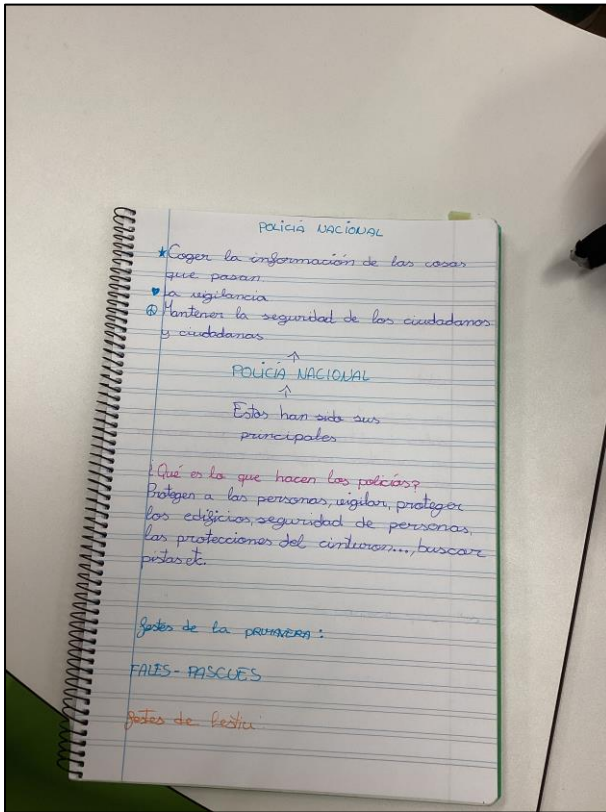 POLICIA NACIONAL
★Coger la información de las cosas
que pasan.
♥La vigilancia
☮Mantener la seguridad de los ciudadanos
y ciudadanas
↑
POLICÍA NACIONAL
↑
Estos han sido sus
principales
¿Qué es lo que hacen los policías?
Protegen a las personas, vigilar, proteger
los edificios, seguridad de personas,
las protecciones del cinturon..., buscar
pistas etc.
festes de la PRIMAVERA:
FALLES-PASCUES
festes de l'estiu: